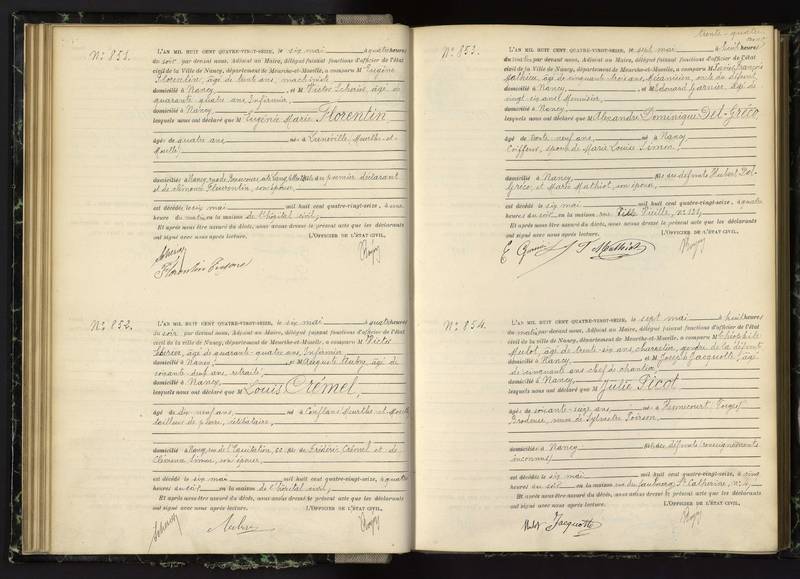 N° 851.
L'AN MIL HUIT CENT QUATRE-VINGT-SEIZE, le six mai à quatre heures
du soir par devant nous, Adjoint au Maire, délégué faisant fonctions d'officier de l'état
civil de la Ville de Nancy, département de Meurthe-et-Moselle, a comparu M Eugène
Florentin, âgé de trente ans, machiniste
domicilié à Nancy et M Victor Scherier, âgé de
quarante quatre ans Infirmier
domicilié à Nancy
lesquels nous ont déclaré que M Eugénie Marie Florentin
âgée de quatre ans née à Lunéville, Meurthe-et-
Moselle
domiciliée à Nancy, au premier déclarant
et de Florentin, son épouse
est décédée le six mai mil huit cent quatre-vingt-seize, à une
heure du matin en la maison de l'hôpital civil
Et après nous être assuré du décès, nous avons dressé le présent acte que les déclarants
ont signé avec nous après lecture. L'OFFICIER DE L'ÉTAT CIVIL,
Florentin
N° 852.
L'AN MIL HUIT CENT QUATRE-VINGT-SEIZE, le six mai à quatre heures
du soir par devant nous, Adjoint au Maire, délégué faisant fonctions d'officier de l'état
civil de la Ville de Nancy, département de Meurthe-et-Moselle, a comparu M Victor
Scherier, âgé de quarante-quatre ans, Infirmier
domicilié à Nancy et M Auguste Aubry, âgé de
soixante-neuf ans, retraité
domicilié à Nancy
lesquels nous ont déclaré que M Louis Crémel,
âgé de dix-neuf ans, né à Conflans Meurthe-et-Moselle
tailleur de pierre, célibataire
domicilié à Nancy, rue de l'Equitation, fils de Frédéric Crémel et de
son épouse
est décédé le six mai mil huit cent quatre-vingt-seize, à quatre
heures du soir en la maison de l'hôpital civil
Et après nous être assuré du décès, nous avons dressé le présent acte que les déclarants
ont signé avec nous après lecture. L'OFFICIER DE L'ÉTAT CIVIL,
Aubry
trente-quatre
N° 853.
L'AN MIL HUIT CENT QUATRE-VINGT-SEIZE, le sept mai à huit heures
du matin par devant nous, Adjoint au Maire, délégué faisant fonctions d'officier de l'état
civil de la Ville de Nancy, département de Meurthe-et-Moselle, a comparu M Louis François
Mathiot, âgé de cinquante-trois ans, Mécanicien, oncle du défunt
domicilié à Nancy et M Edouard Garnier, âgé de
vingt-six ans, Menuisier
domicilié à Nancy
lesquels nous ont déclaré que M Alexandre Dominique Del-Gréco,
âgé de trente neuf ans né à Nancy
Coiffeur, époux de Marie Louise Simon
domicilié à Nancy fils des défunts Hubert Del-
Gréco, et Marie Mathiot, son épouse
est décédé le six mai mil huit cent quatre-vingt-seize, à quatre
heures du soir en la maison rue Ville Vieille, n° 121
Et après nous être assuré du décès, nous avons dressé le présent acte que les déclarants
ont signé avec nous après lecture. L'OFFICIER DE L'ÉTAT CIVIL,
E Garnier Mathiot
N° 854.
L'AN MIL HUIT CENT QUATRE-VINGT-SEIZE, le sept mai à huit heures
du matin par devant nous, Adjoint au Maire, délégué faisant fonctions d'officier de l'état
civil de la ville de Nancy, département de Meurthe-et-Moselle, a comparu M Théophile
Mulot, âgé de trente six ans, charretier, gendre de la défunte
domicilié à Nancy et M Joseph Jacquotte, âgé
de cinquante ans chef de chantier
domicilié à Nancy
lesquels nous ont déclaré que M Julie Picot
âgée de soixante-seize ans née à Remicourt Vosges
Brodeuse, veuve de Sylvestre Poirson
domiciliée à Nancy fille des défunts (renseignements
inconnus)
est décédée le six mai mil huit cent quatre-vingt-seize, à cinq
heures du soir en la maison rue du faubourg Ste Catherine, n° 4
Et après nous être assuré du décès, nous avons dressé le présent acte que les déclarants
ont signé avec nous après lecture. L'OFFICIER DE L'ÉTAT CIVIL,
Mulot Jacquotte